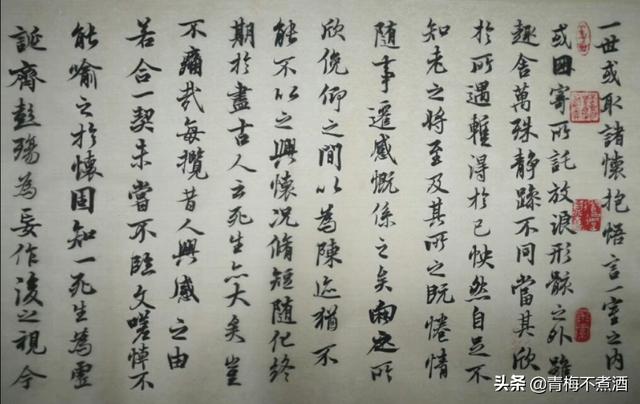 一世或取諸懷抱悟言一室之內
或因寄所託放浪形骸之外雖
趣舍萬殊靜躁不同當其欣
於所遇輒得於己怏然自足不
知老之將至及其所之既惓情
隨事遷感慨係之矣向之所
欣俛仰之間以為陳迹猶不
能不以之興懷況脩短隨化終
期於盡古人云死生亦大矣豈
不痛哉每攬昔人興感之由
若合一契未嘗不臨文嗟悼不
能喻之於懷固知一死生為虛
誕齊彭殤為妄作後之視今
头条 @青梅不煮酒